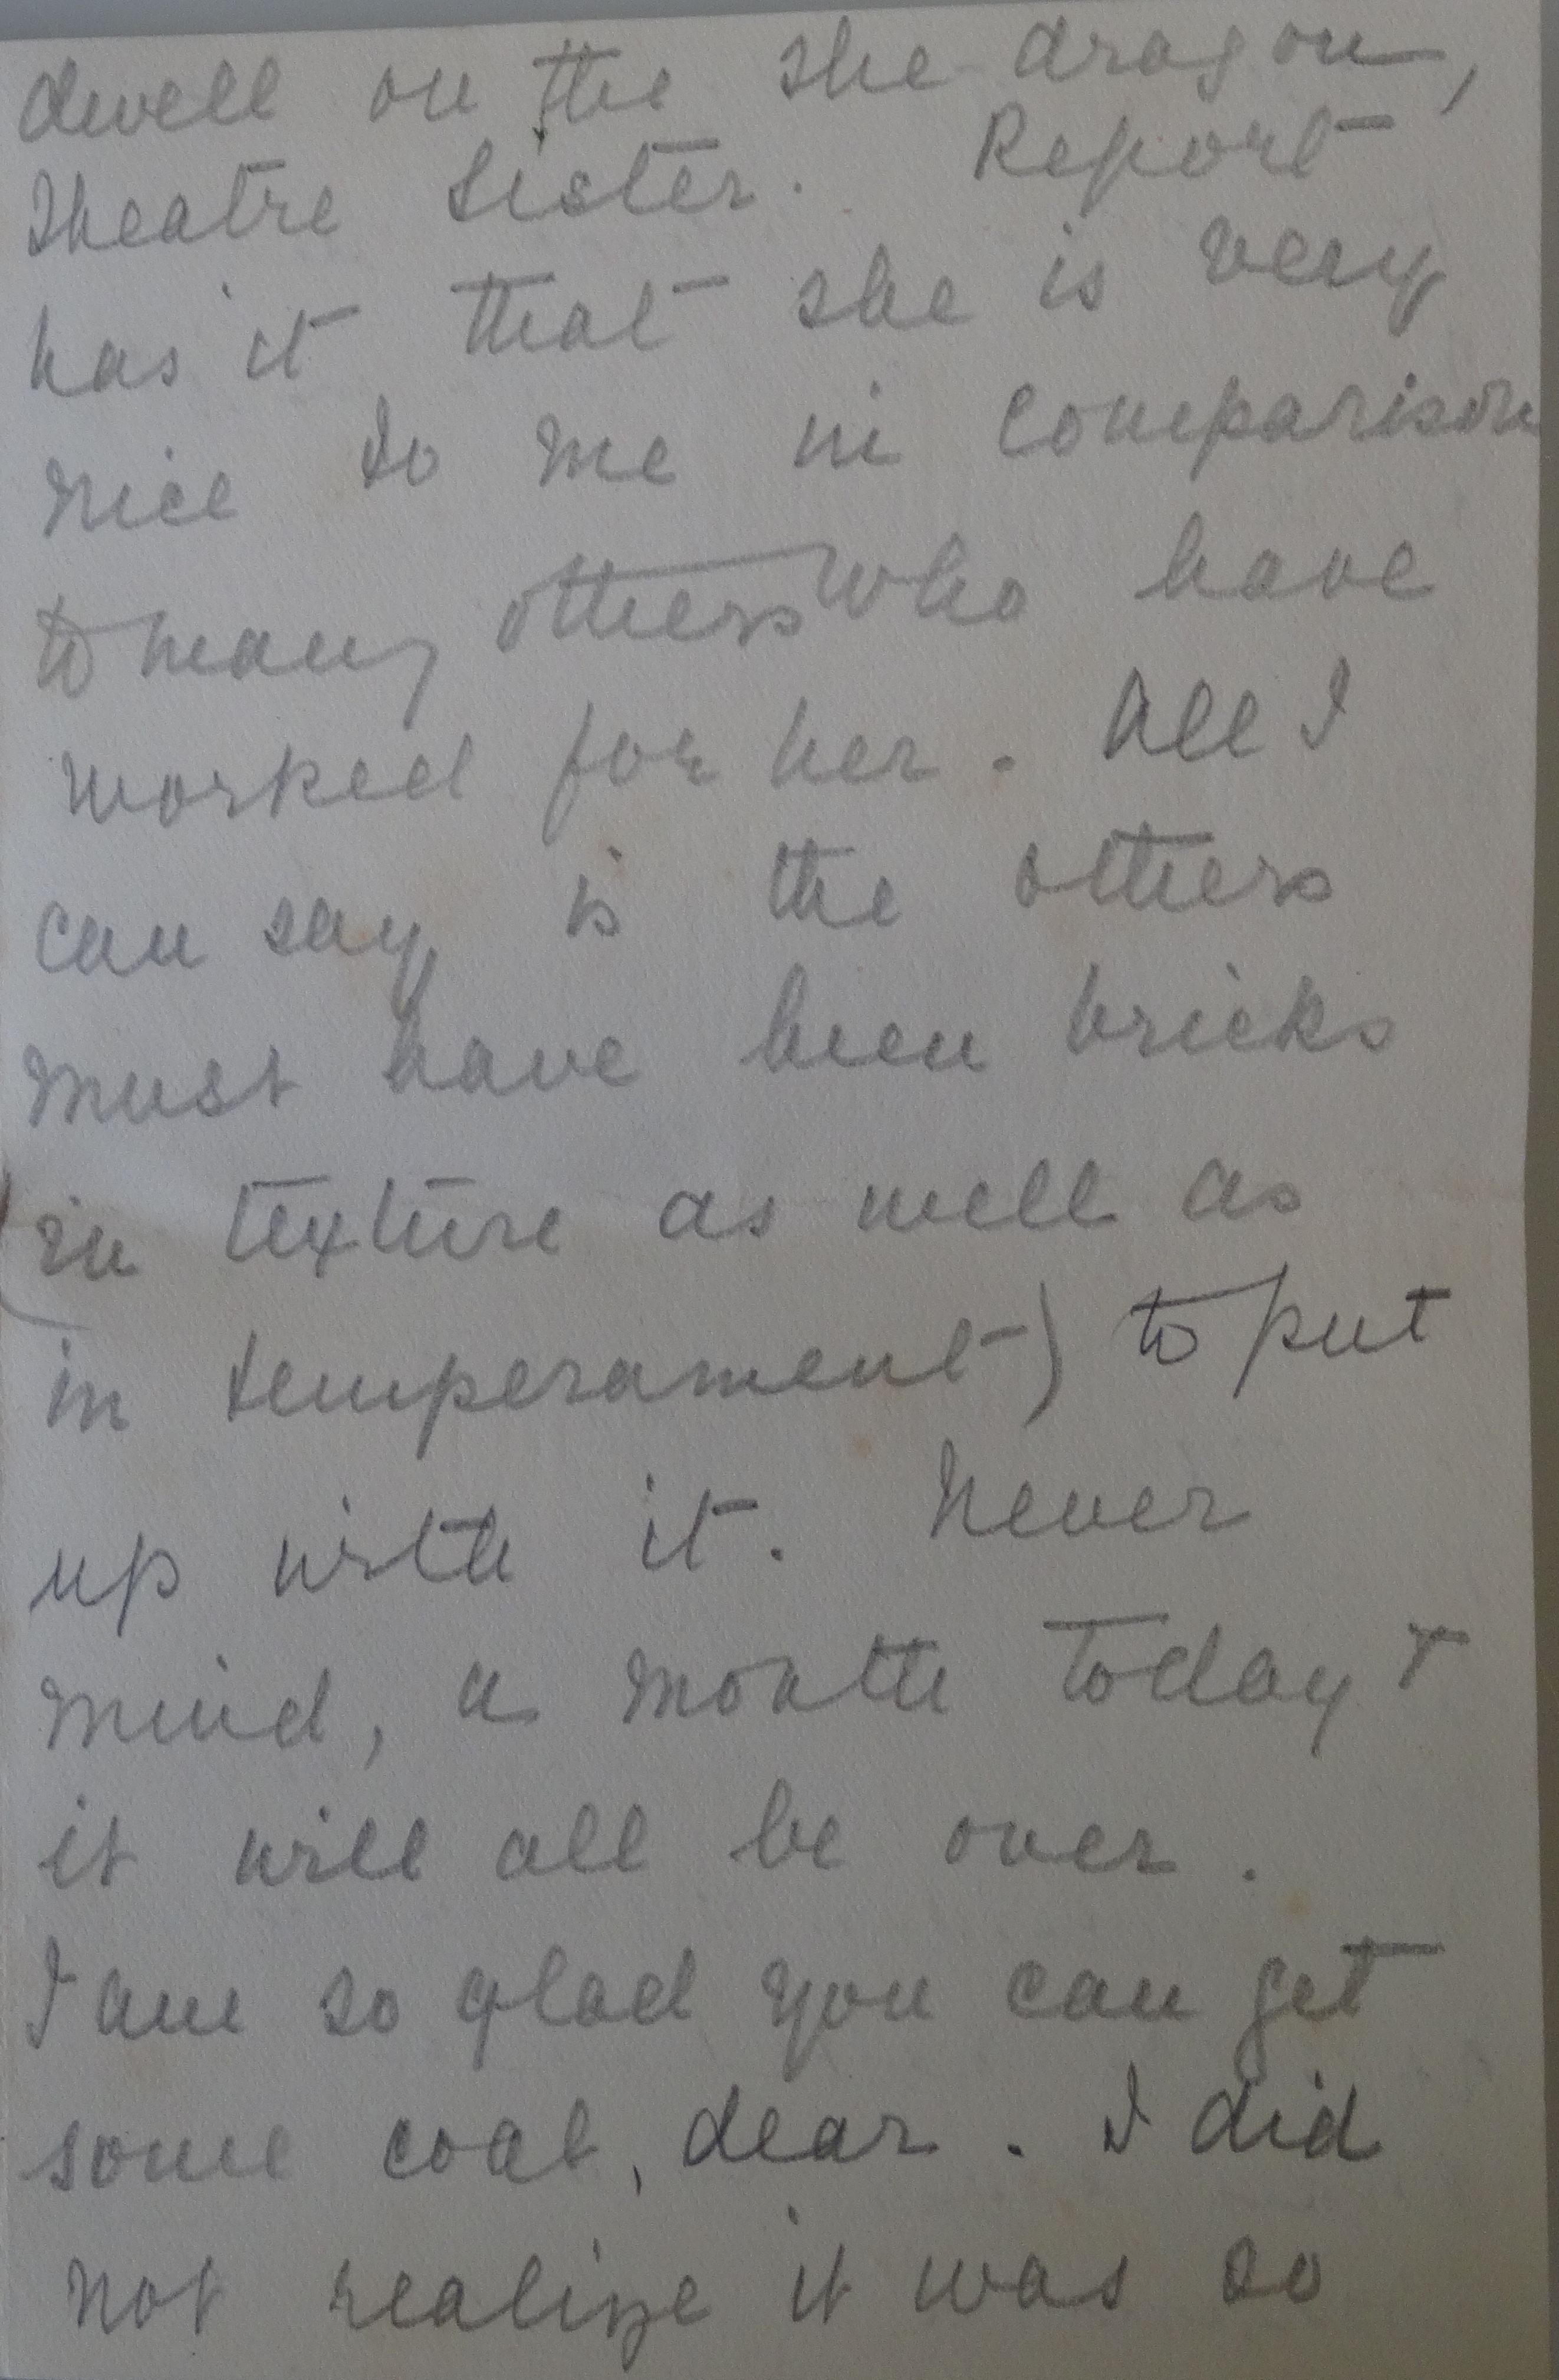 dwell on the she dragon,
Theatre Sister. Report
has it that she is very
nice to me in comparison
to many others who have
worked for her. All I
can say is the others
must have been bricks
(in texture as well as
in temperament) to put
up with it. Never
mind, a month today &
it will all be over.
I am so glad you can get
some coal, dear. I did
not realize it was so